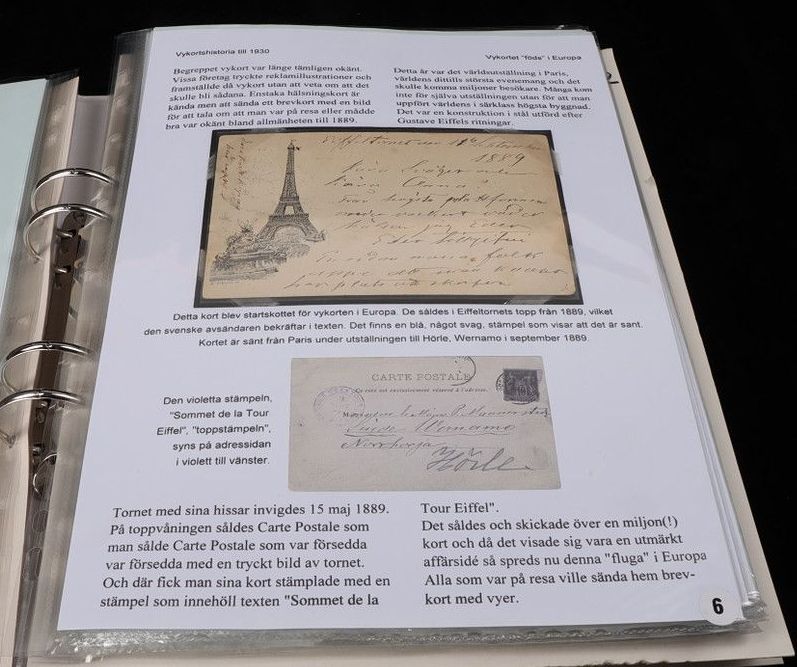 Vykortshistoria till 1930
Vykortet "föds" i Europa
Begreppet vykort var länge tämligen okänt.
Vissa företag tryckte reklamillustrationer och
framställde då vykort utan att veta om att det
skulle bli sådana. Enstaka hälsningskort är
kända men att sända ett brevkort med en bild
för att tala om att man var på resa eller mådde
bra var okänt bland allmänheten till 1889.
Detta år var det världsutställning i Paris,
världens dittills största evenemang och det
skulle komma miljoner besökare. Många kom
inte för själva utställningen utan för att man
uppfört världens i särklass högsta byggnad.
Det var en konstruktion i stål utförd efter
Gustave Eiffels ritningar.
1889
Anna
Detta kort blev startskottet för vykorten i Europa. De såldes i Eiffeltornets topp från 1889, vilket
den svenske avsändaren bekräftar i texten. Det finns en blå, något svag, stämpel som visar att det är sant.
Kortet är sänt från Paris under utställningen till Hörle, Wernamo i september 1889.
Den violetta stämpeln,
"Sommet de la Tour
Eiffel", "toppstämpeln",
syns på adressidan
i violett till vänster.
CARTE POSTALE
Ce côté est exclusivement réservé à l'adresse.
Suède Wernamo
Hörle
Tornet med sina hissar invigdes 15 maj 1889.
På toppvåningen såldes Carte Postale som
man sålde Carte Postale som var försedda
var försedda med en tryckt bild av tornet.
Och där fick man sina kort stämplade med en
stämpel som innehöll texten "Sommet de la
Tour Eiffel".
Det såldes och skickades över en miljon(!)
kort och då det visade sig vara en utmärkt
affärsidé så spreds nu denna "fluga" i Europa
Alla som var på resa ville sända hem brev-
kort med vyer.
6